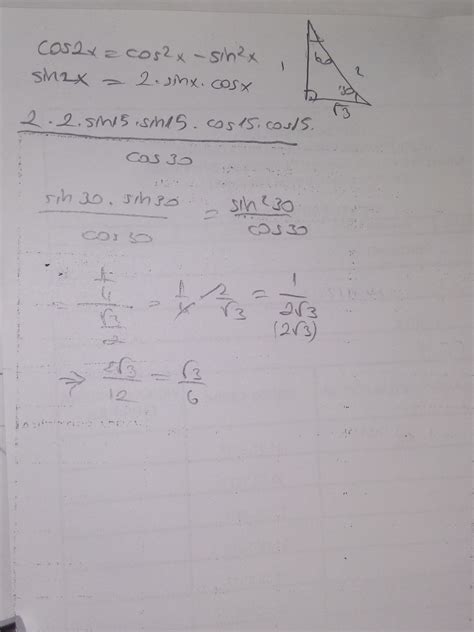 cos2x = cos²x - sin²x
sin2x = 2·sinx·cosx
1 60 2 30 √3
2·2·sin15·sin15·cos15·cos15
cos30
sin30·sin30 / cos30 = sin²30 / cos30
= 1/4 / √3/2 = 1/4 · 2/√3 = 1 / 2√3
(2√3)
⇒ 2√3/12 = √3/6